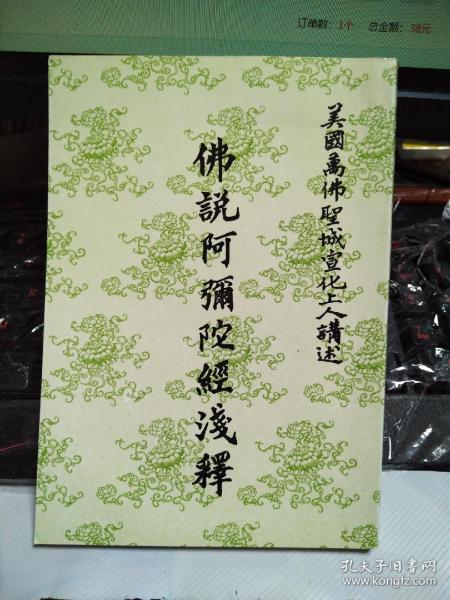 订单数：1个 总金额：38元
美國萬佛聖城宣化上人講述
佛說阿彌陀經淺釋
孔夫子旧书网
www.kongfz.com